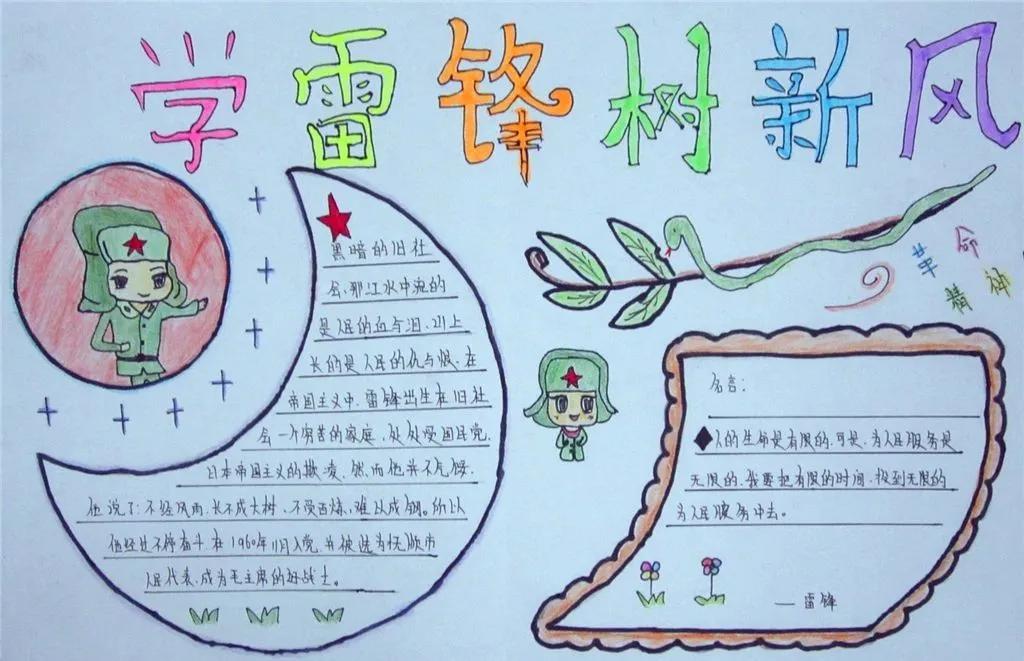 学雷锋树新风
黑暗的旧社
会，那江水中流的
是人民的血与泪，山上
长的是人民的仇与恨，在
帝国主义中，雷锋出生在旧社
会一个穷苦的家庭，处处受国民党，
日本帝国主义的欺凌，然而他并不气馁，
他说了：不经风雨，长不成大树，不受百炼，难以成钢。所以
他经过不停奋斗在1960年11月入党，并被选为抚顺市
人民代表，成为毛主席的好战士。
革命
精神
名言：
人的生命是有限的，可是，为人民服务是
无限的，我要把有限的时间，投到无限的
为人民服务中去。
——雷锋